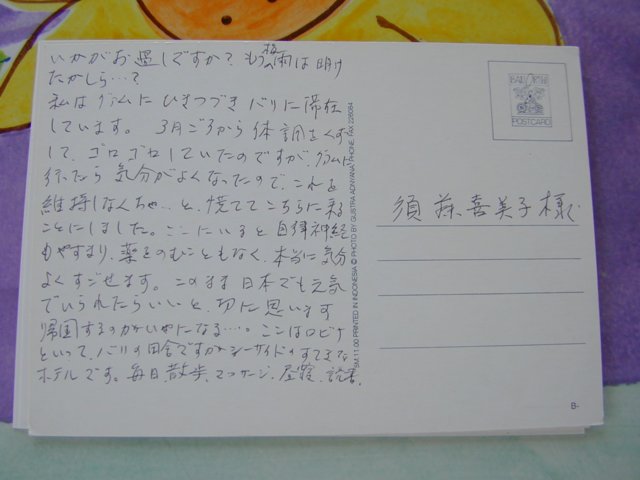 いかがお過しですか？もう梅雨は明け
たかしら…？
私はグアムにひきつづきバリに滞在
しています。3月ごろから体調をくず
して、ゴロゴロしていたのですが、グアムに
行ったら気分がよくなったので、これを
維持しなくちゃ…と、慌ててこちらに来る
ことにしました。ここにいると自律神経
もやすまり、薬をのむこともなく、本当に気分
よくすごせます。このまま日本でも元気
でいられたらいいと、切に思います
帰国するのがいやになる…。ここはロビナ
といって、バリの田舎ですがシーサイドのすてきな
ホテルです。毎日、散歩、マッサージ、昼寝、読書。
SM.11-00 PRINTED IN INDONESIA © PHOTO BY GUSTRA ADNYANA PHONE /FAX 228084
POSTCARD
須藤喜美子様
B-